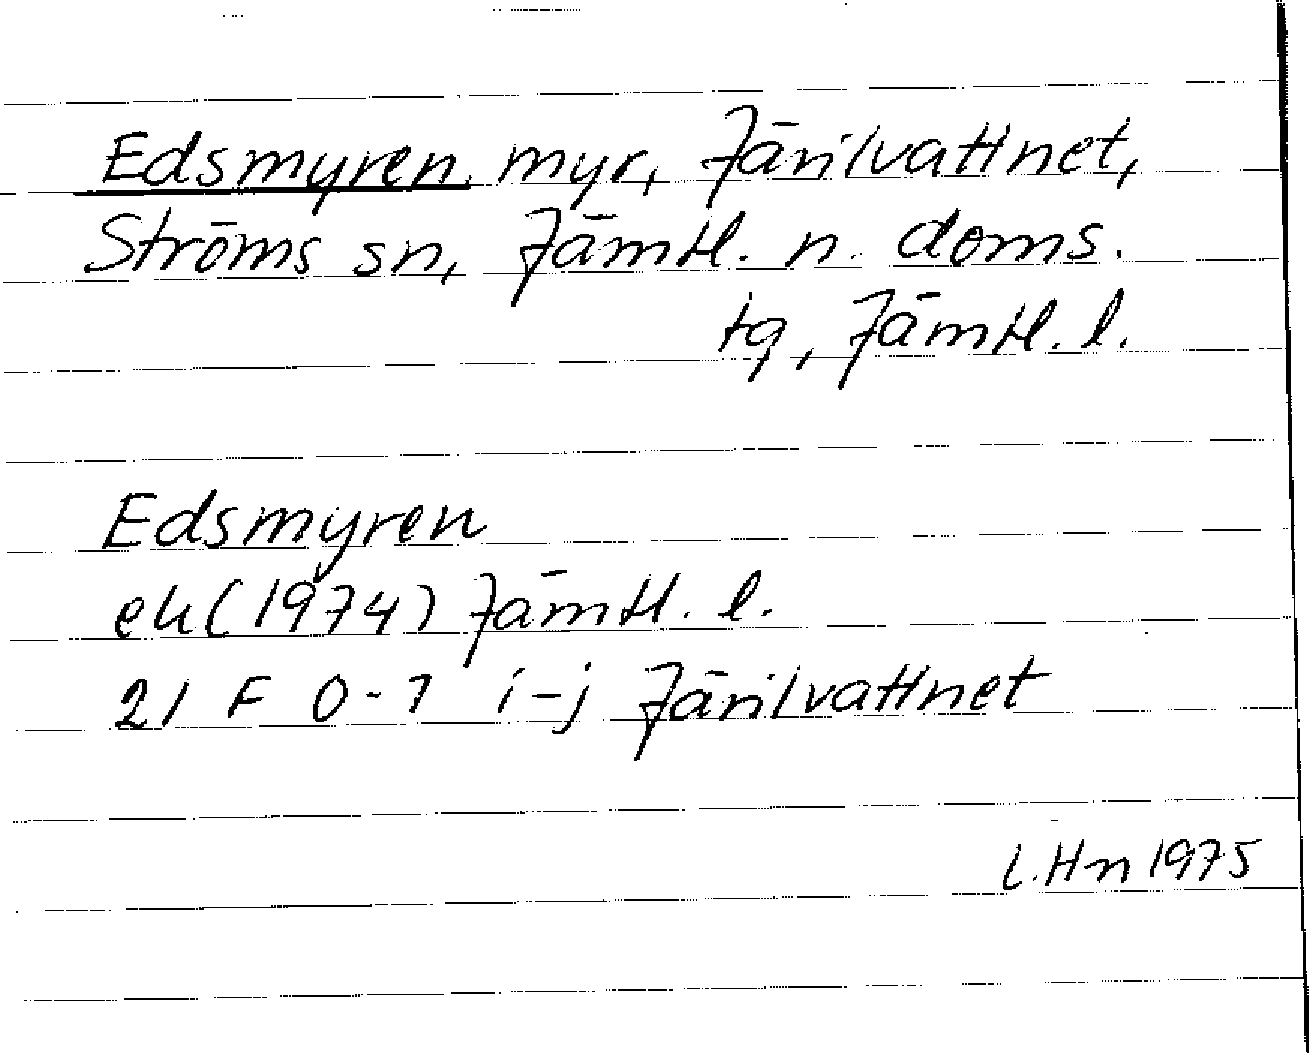 Edsmyren, myr, Järilvattnet,
Ströms sn, Jämtl. n. doms.
tg, Jämtl. l.
Edsmyren
ek (1974) Jämtl. l.
21 F 0-1 i-j Järilvattnet
L. Hn 1975